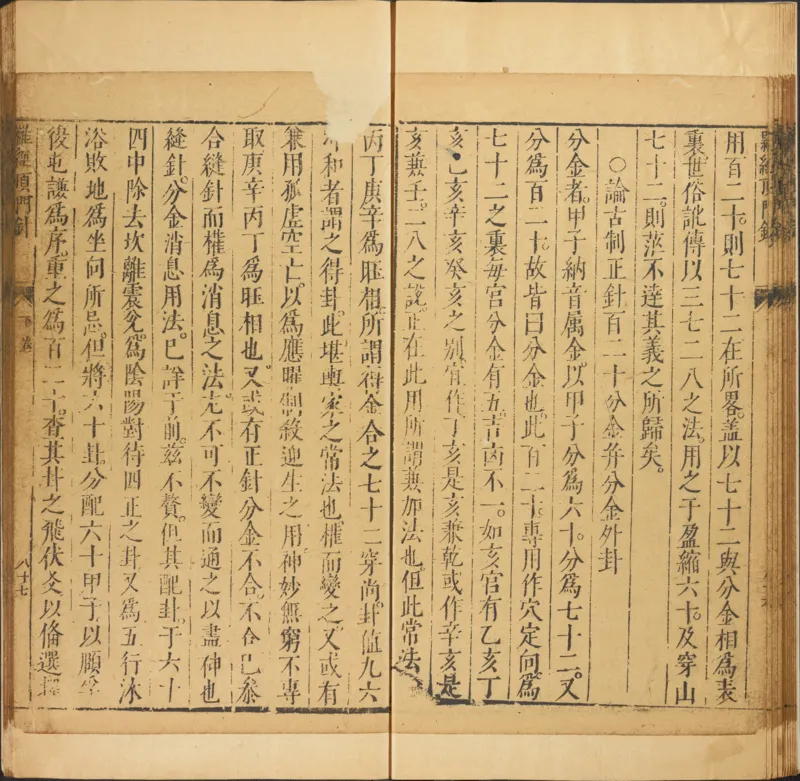 用百二十。則七十二在所畧。盖以七十二與分金相爲表
裏。世俗訛傳以三七二八之法。用之于盈縮六十。及穿山
七十二。則茫不達其義之所歸矣。
○論古制正針百二十分金并分金外卦
分金者。甲子納音属金。以甲子分爲六十。分爲七十二。又
分爲百二十。故皆曰分金也。此百二十。專用作穴定向。爲
七十二之裏。每宮分金有五。吉凶不一。如亥宮有乙亥丁
亥己亥辛亥癸亥之别。宜作丁亥是亥兼乾。或作辛亥是
亥兼壬。三八之說。正在此用。所謂兼加法也。但此常法
丙丁庚辛爲旺相。所謂得金合之七十二穿尚。卦值九六
冲和者謂之得卦。此堪輿家之常法也。權而變之。又或有
兼用孤虛空亡。以爲應曜制殺迎生之用。神妙無窮。不專
取庚辛丙丁爲旺相也。又或有正針分金不合。不合巳叅
合縫針。而權爲消息之法。尤不可不變而通之以盡神也
縫針。分金消息用法。已詳于前。兹不贅。但其配卦。于六十
四中除去坎離震兌。爲陰陽對待四正之卦。又爲五行沐
浴敗地。爲坐向所忌。但將六十卦。分配六十甲子。以顺蒙
後屯謙爲序。重之爲百二十。查其卦之飛伏爻以偹選擇
羅經頂門針
下卷
八十七
羅經頂門針